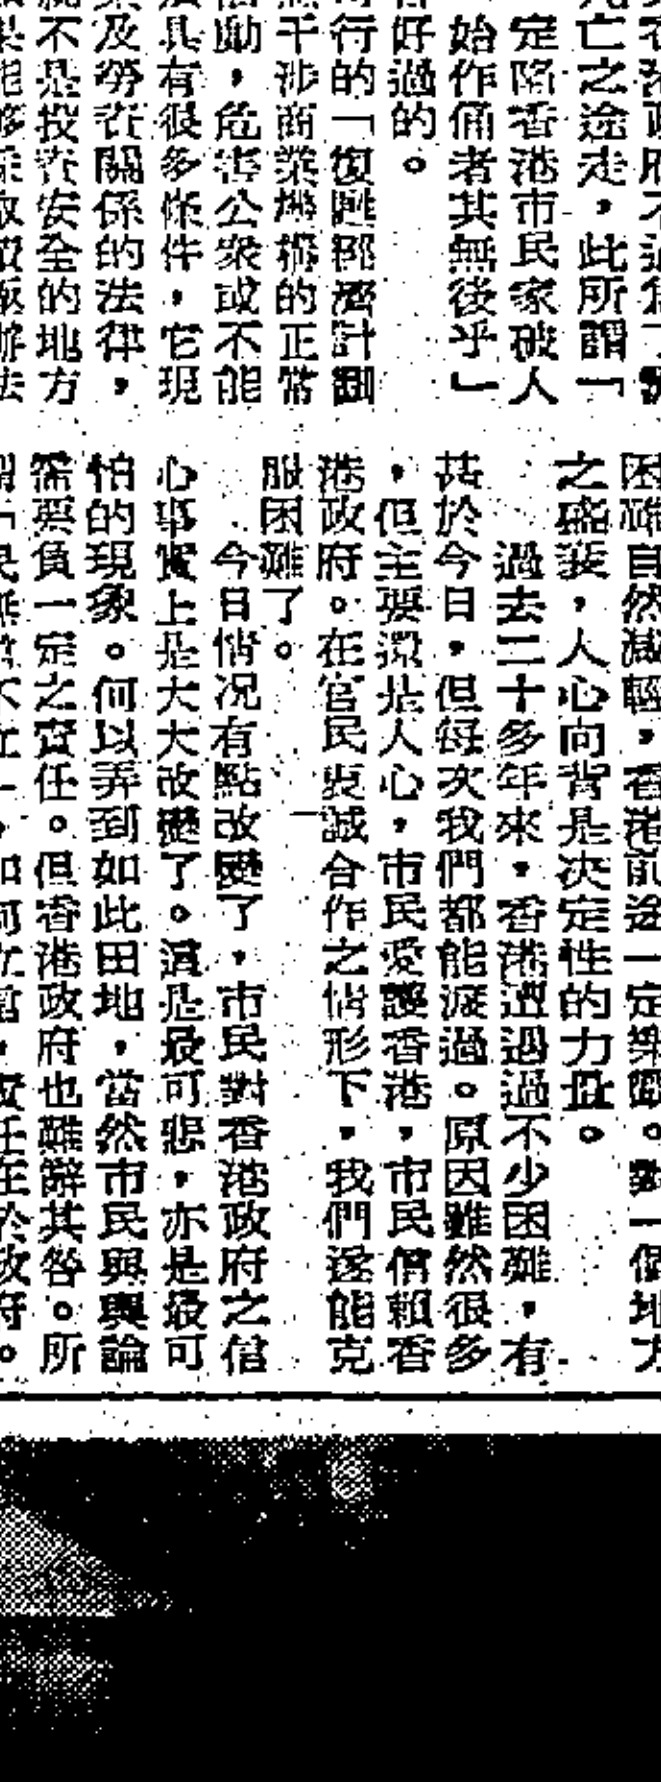 亡之途走，此所謂「
定陷香港市民家破人
始作俑者其無後乎」
好過的。
行的「復興經濟計劃
干涉商業機構的正常
動，危害公衆或不能
具有很多條件，它現
及勞資關係的法律，
不是投資安全的地方
困難自然減輕，香港前途一定樂觀。對一個地方
之盛衰，人心向背是决定性的力量。
過去二十多年來，香港遭遇過不少困難，有
甚於今日，但每次我們都能渡過。原因雖然很多
，但主要還是人心，市民愛護香港，市民信賴香
港政府。在官民衷誠合作之情形下，我們遂能克
服困難了。
今日情况有點改變了，市民對香港政府之信
心事實上是大大改變了。這是最可悲，亦是最可
怕的現象。何以弄到如此田地，當然市民與輿論
需要負一定之責任。但香港政府也難辭其咎。所